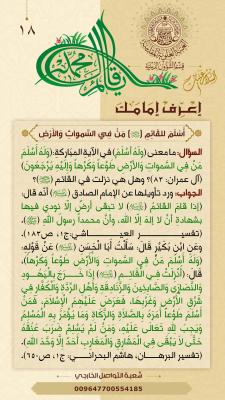 ١٨
يا قائم آل محمد
إعرف إمامك
أسلم للقائم (عج) من في السموات والأرض
السؤال: ما معنى (وَلَهُ أَسْلَمَ) في الآية المباركة: (وَلَهُ أَسْلَمَ
مَنْ فِي السَّمَوَاتِ وَالْأَرْضِ طَوْعًا وَكَرْهًا وَإِلَيْهِ يُرْجَعُونَ)
(آل عمران: ٨٣)؟ وهل هي نزلت في القائم (عج)؟
الجواب: ورد تأويلها عن الإمام الصادق (ع) أنّه قال:
(إذا قام القائم (عج) لا تبقى أرض إلّا نودي فيها
بشهادة أن لا إله إلّا الله، وأنّ محمداً رسول الله (ص)).
(تفسير العياشي: ج١، ص١٨٣).
وعن ابن بكير قال: سألت أبا الحسن (ع) عن قوله:
(وَلَهُ أَسْلَمَ مَنْ فِي السَّمَوَاتِ وَالْأَرْضِ طَوْعًا وَكَرْهًا)
قال: (أُنزلت في القائم (عج) إذا خرج باليهود
والنصارى والصابئين والزنادقة وأهل الردّة والكفّار في
شرق الأرض وغربها، فعرض عليهم الإسلام، فمن
أسلم طوعاً أمره بالصلاة والزكاة وما يُؤمر به المسلم
ويجب لله تعالى عليه، ومن لم يسلم ضرب عنقه
حتّى لا يبقى في المشارق والمغارب أحد إلّا وحّد الله).
(تفسير البرهان، هاشم البحراني: ج١، ص٦٥٠).
شعبة التواصل الخارجي
009647700554185